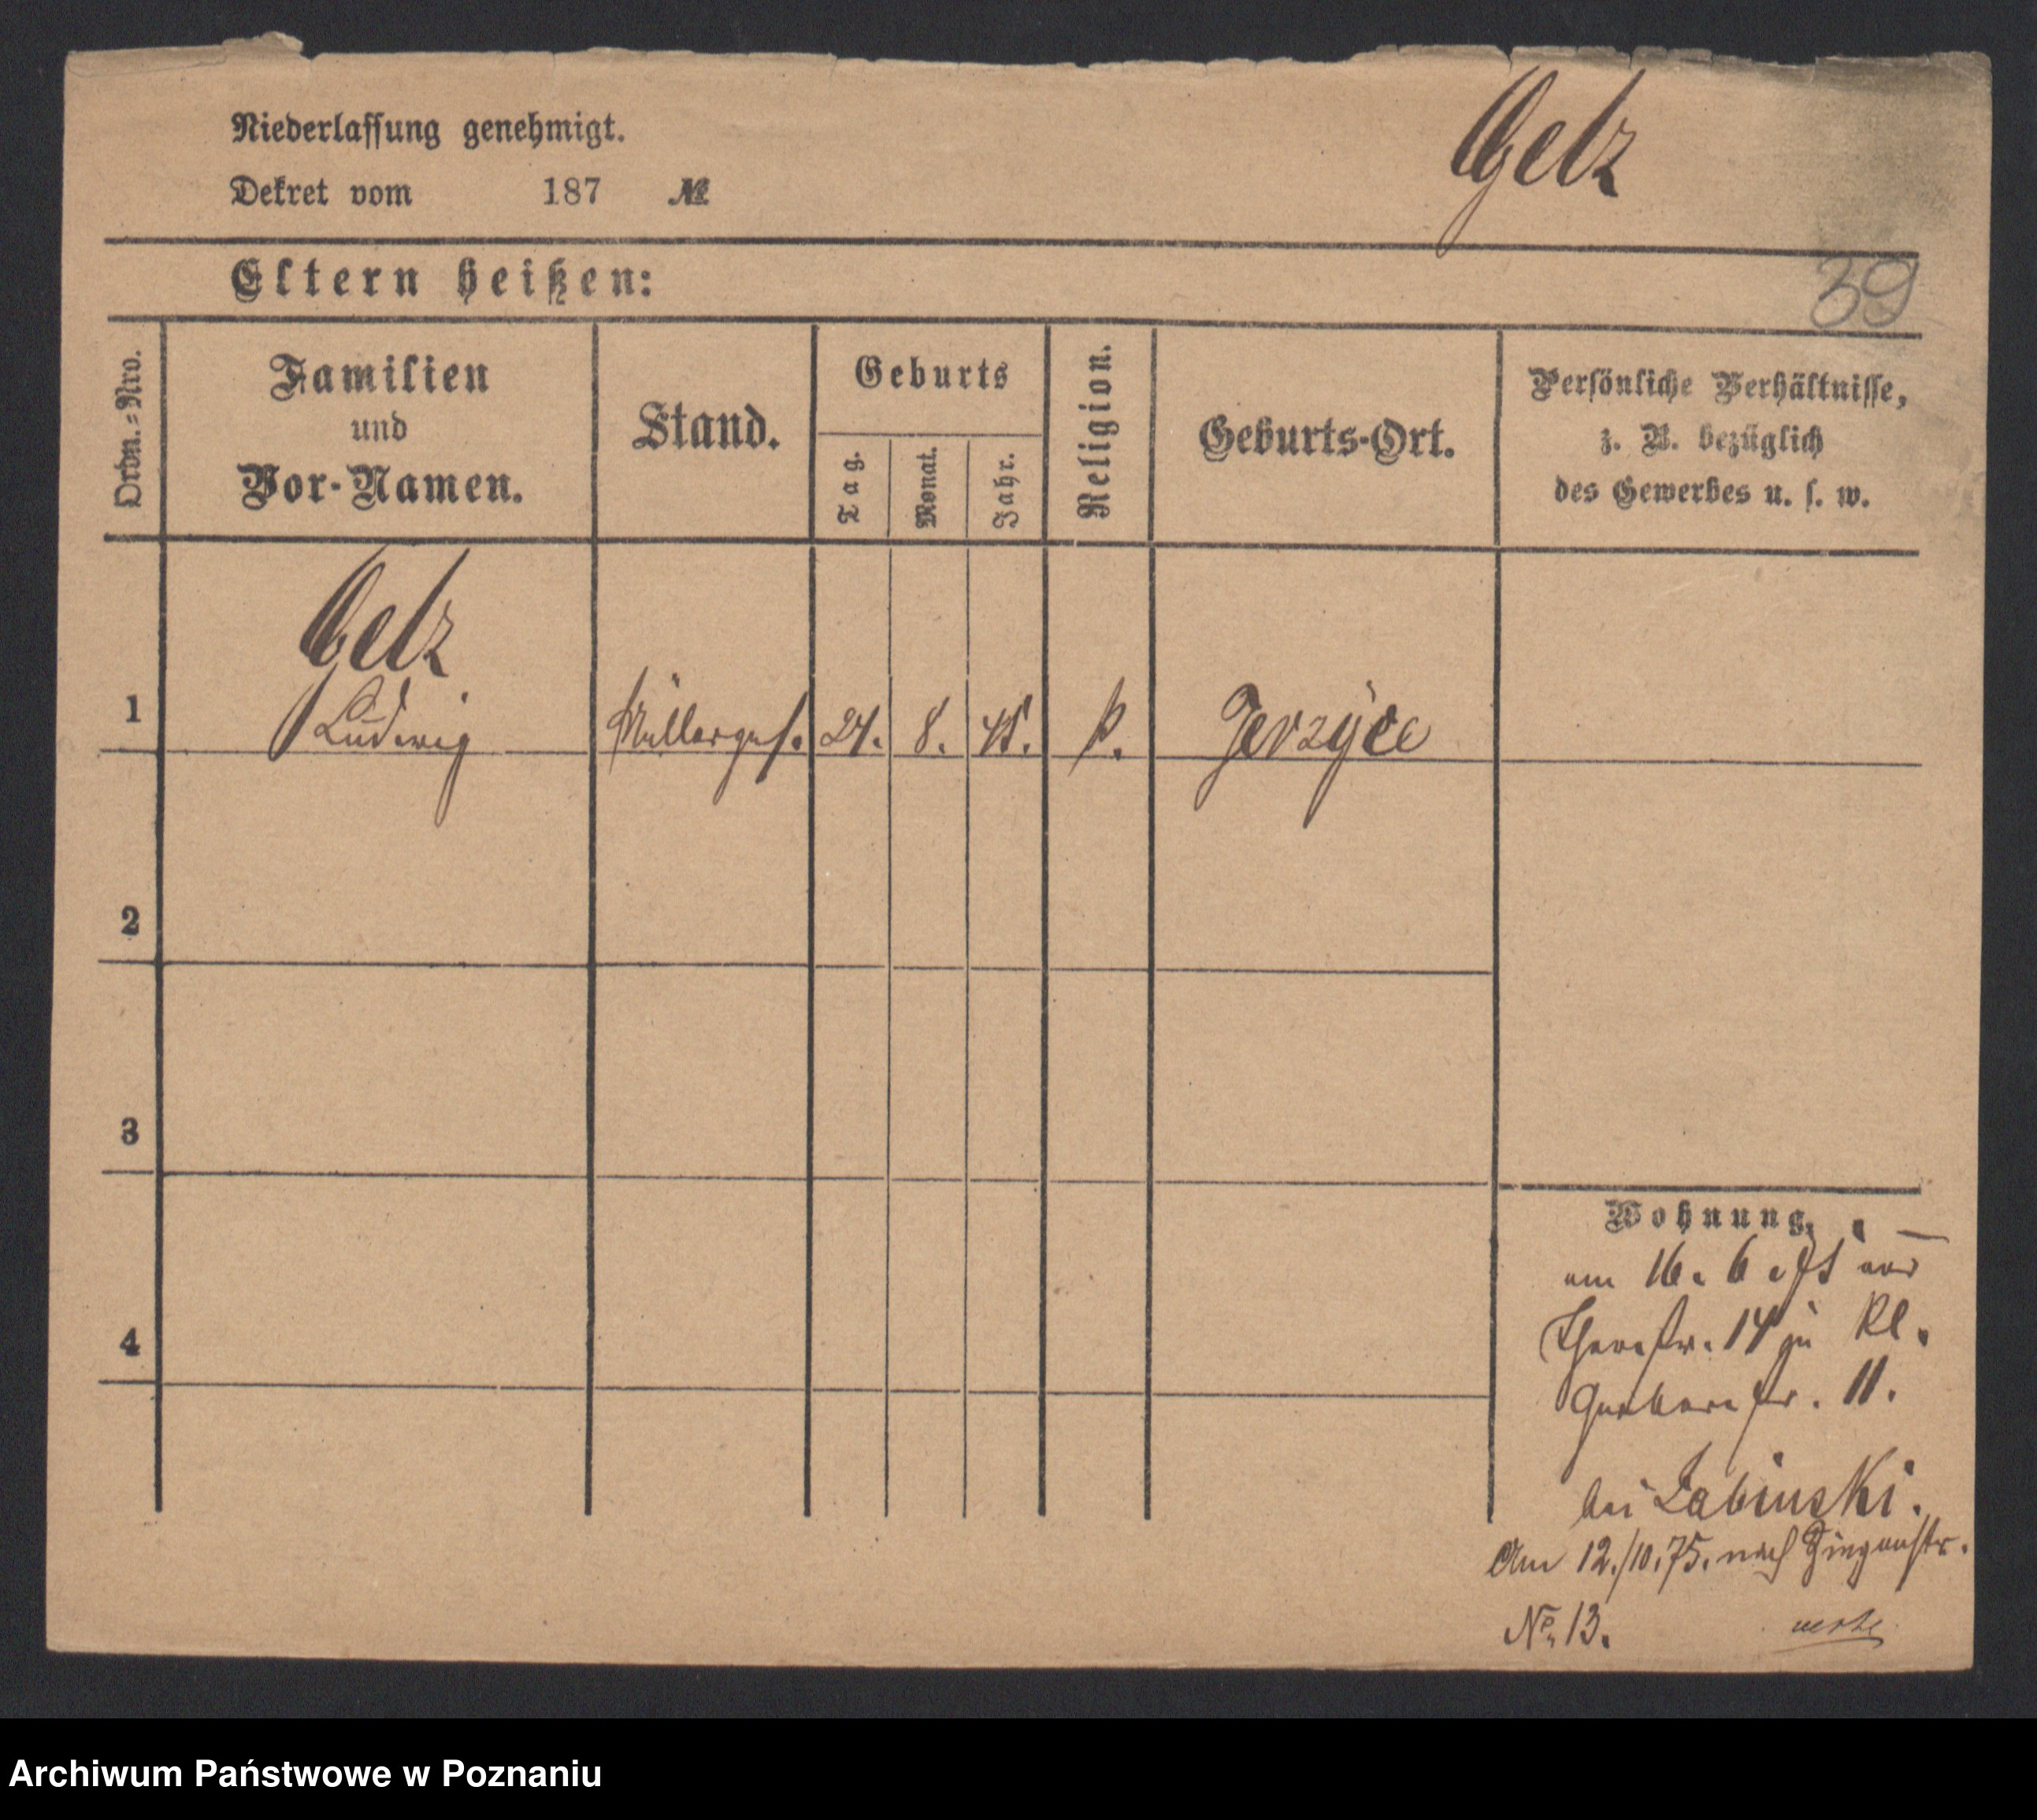 Niederlassung genehmigt.
Dekret vom 187 №
Getz
Eltern heißen:
39
Ordn.=Nro.
Familien
und
Vor-Namen.
Stand.
Geburts
Tag.
Monat.
Jahr.
Religion.
Geburts-Ort.
Persönliche Verhältnisse,
z. B. bezüglich
des Gewerbes u. s. w.
Getz
1 Ludwig Müllerges. 24. 8. 45. k. Jerzyce
2
3
4
Wohnung.
am 16. 6. von
14 zu Kl.
Gerberstr. 11.
bei Labinski.
Am 12./10.75. nach Ziegenstr.
No. 13.
Archiwum Państwowe w Poznaniu